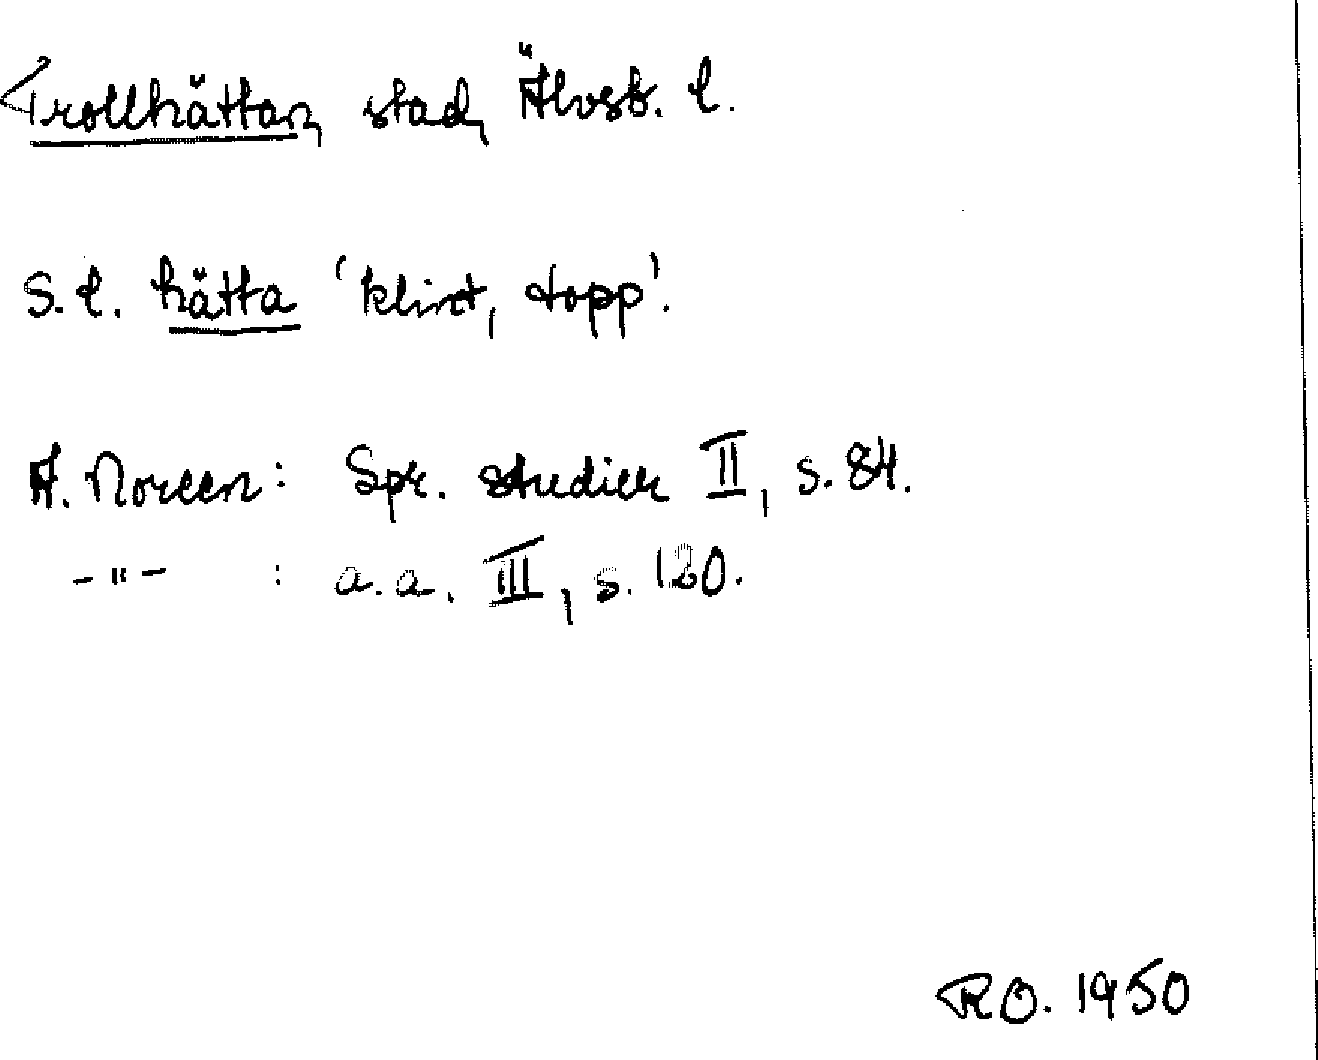 Trollhättan, stad, Älvsb. l.
S. l. hätta 'klint, topp'.
A. Noreen: Spr. studier II, s. 84.
– " – : a. a. III, s. 120.
RO. 1950